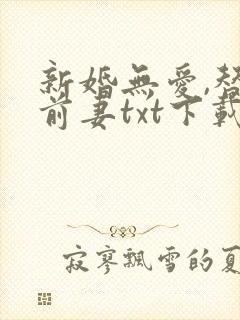 新婚無愛,替
前妻txt下載
寂寥飄雪的夏